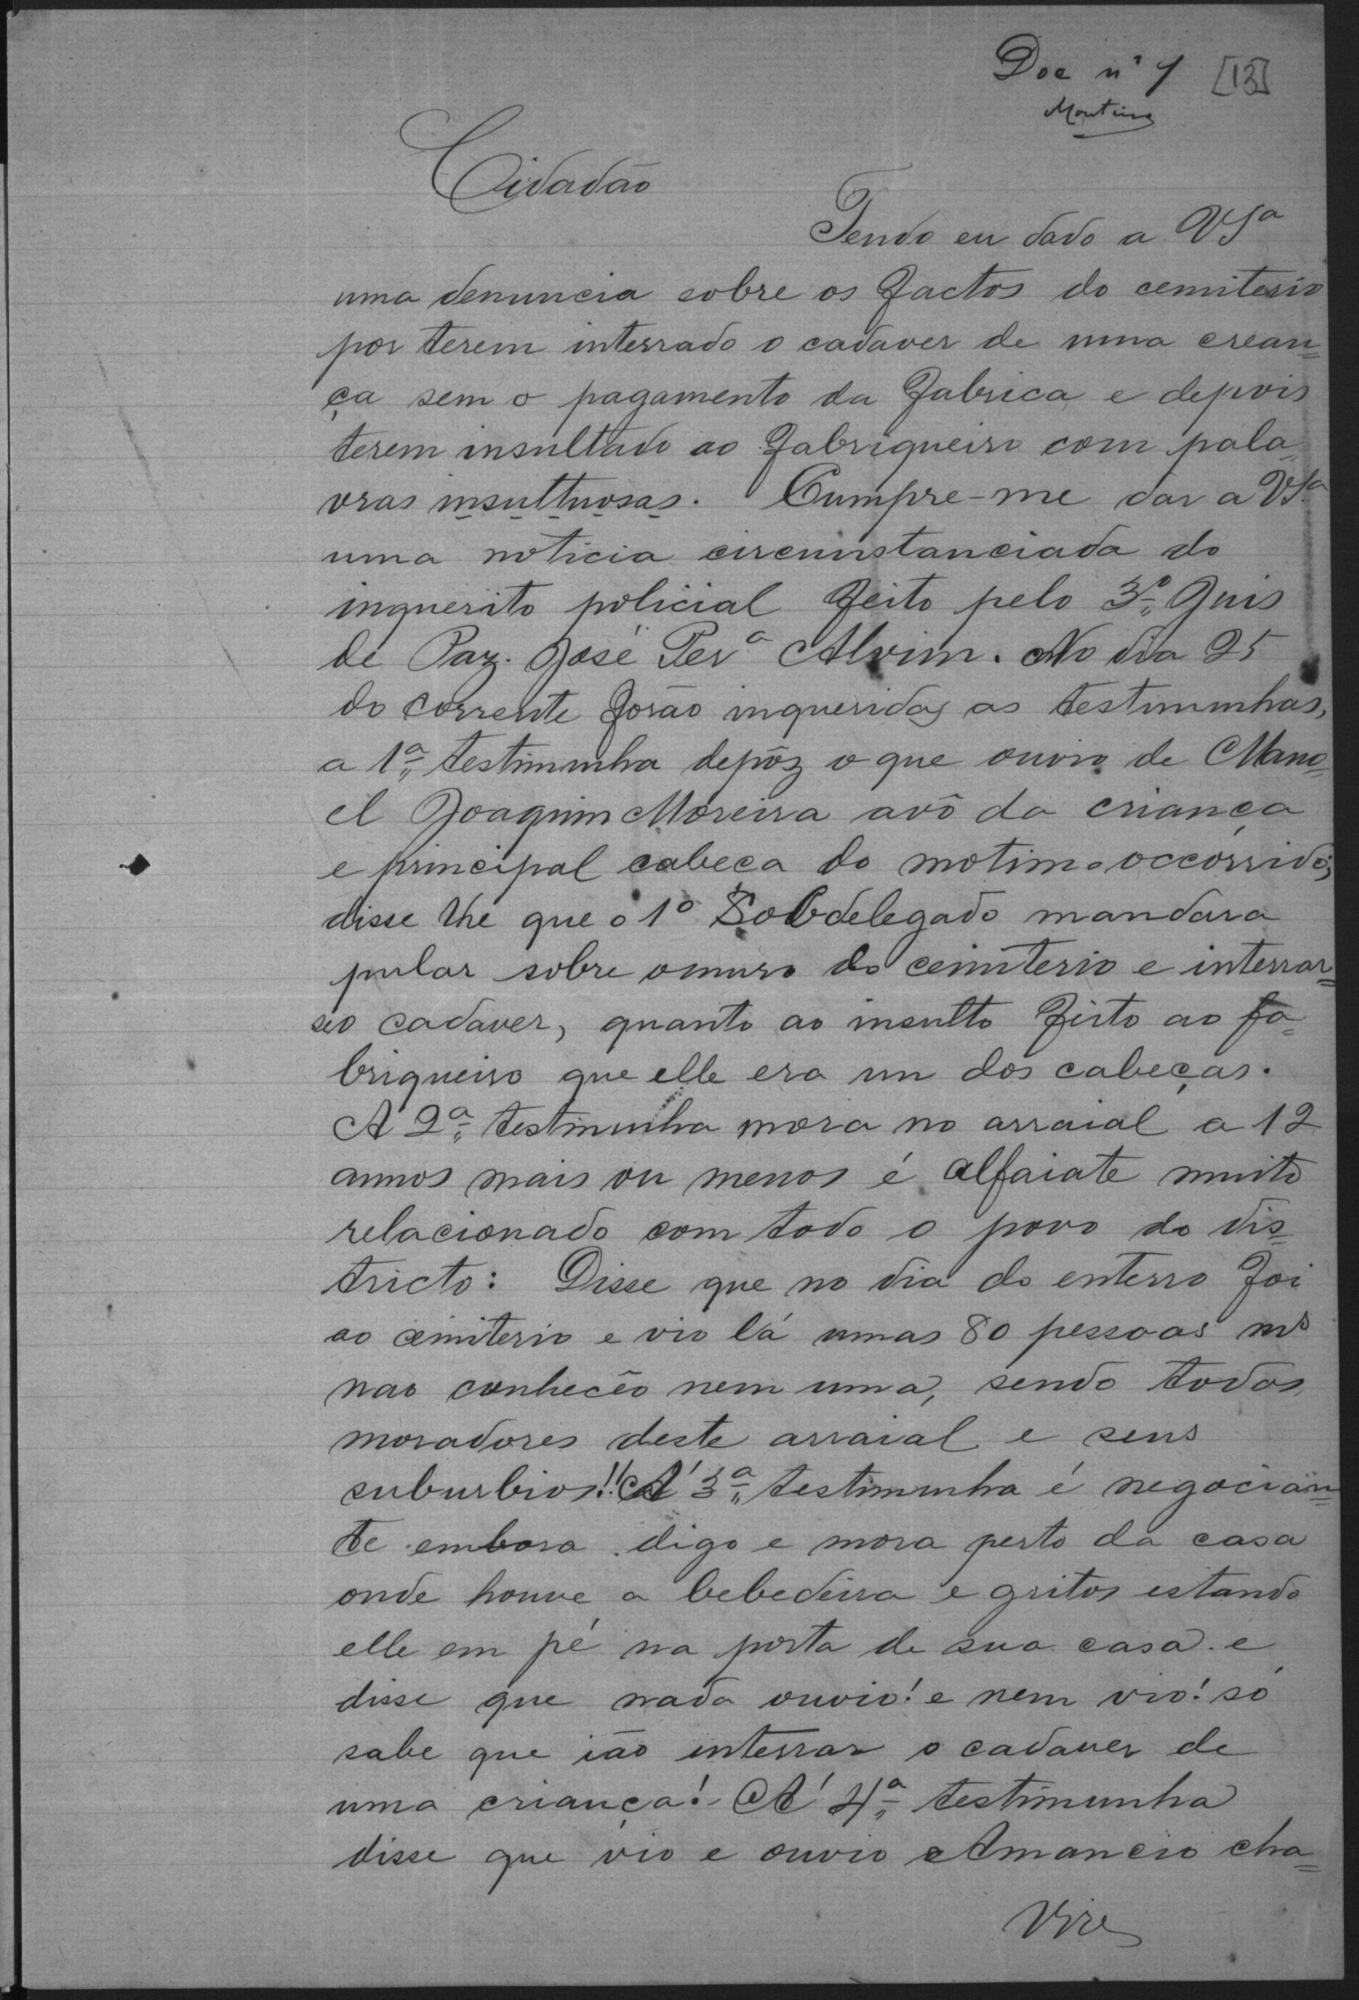 Doc nº 1 [13]
Monteiro
Cidadão
Tendo eu dado a VSª
uma denuncia sobre os factos do cemiterio
por terem interrado o cadaver de uma crean=
ça sem o pagamento da Fabrica e depois
terem insultado ao Fabriqueiro com pala=
vras insultuosas. Cumpre-me dar a VSª
uma noticia circunstanciada do
inquerito policial feito pelo 3º Juis
de Paz. José Perª Alvim. No dia 25
do corrente forão inqueridas as testimunhas,
a 1ª testimunha depôz o que ouvio de Mano=
el Joaquim Moreira avô da criança
e principal cabeca do motim occorrido;
disse lhe que o 1º Sobdelegado mandara
pular sobre o muro do cemiterio e interrar=
seo cadaver, quanto ao insulto feito ao fa=
briqueiro que elle era um dos cabeças.
A 2ª testimunha mora no arraial a 12
annos mais ou menos é alfaiate muito
relacionado com todo o povo do dis=
tricto: Disse que no dia do enterro foi
ao cemiterio e vio lá umas 80 pessoas mˢ
nao conhecêo nem uma, sendo todos
moradores deste arraial e seus
suburbios!! A 3ª testimunha é negocian=
te embora digo e mora perto da casa
onde houve a bebedeira e gritos estando
elle em pé na porta de sua casa e
disse que nada ouvio! e nem vio! só
sabe que ião interrar o cadaver de
uma criança! A 4ª testimunha
disse que vio e ouvio Amancio cha=
Vire